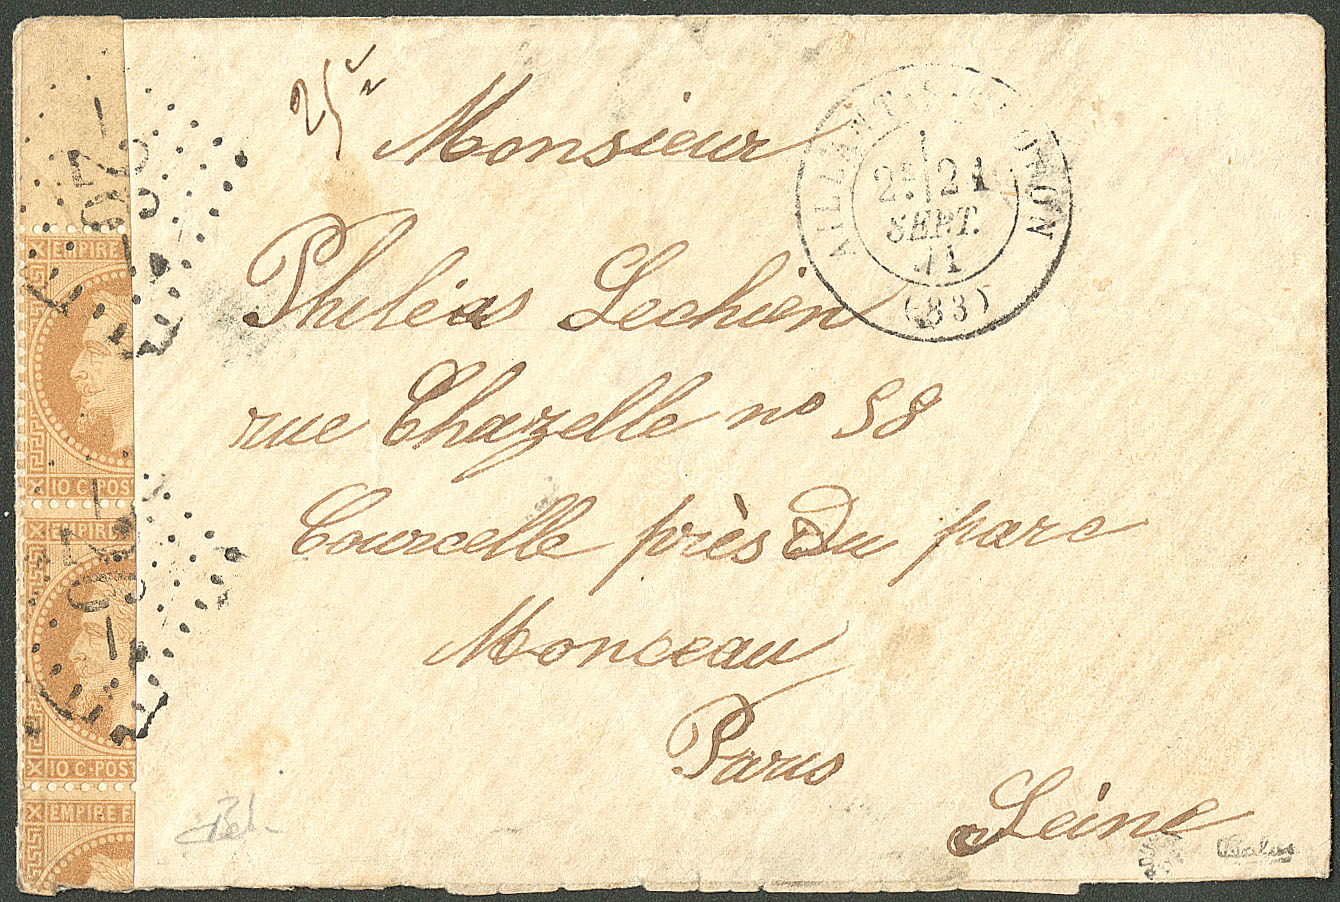 25c
Monsieur
Philéas Lechien
rue Chazelle no 58
Courcelle près du parc
Monceau
Paris
Seine
AILLANT-S-THOLON
2E 21
SEPT.
71
(83)
EMPIRE
10 C·POS
EMPIRE
10 C·POST
EMPIRE F